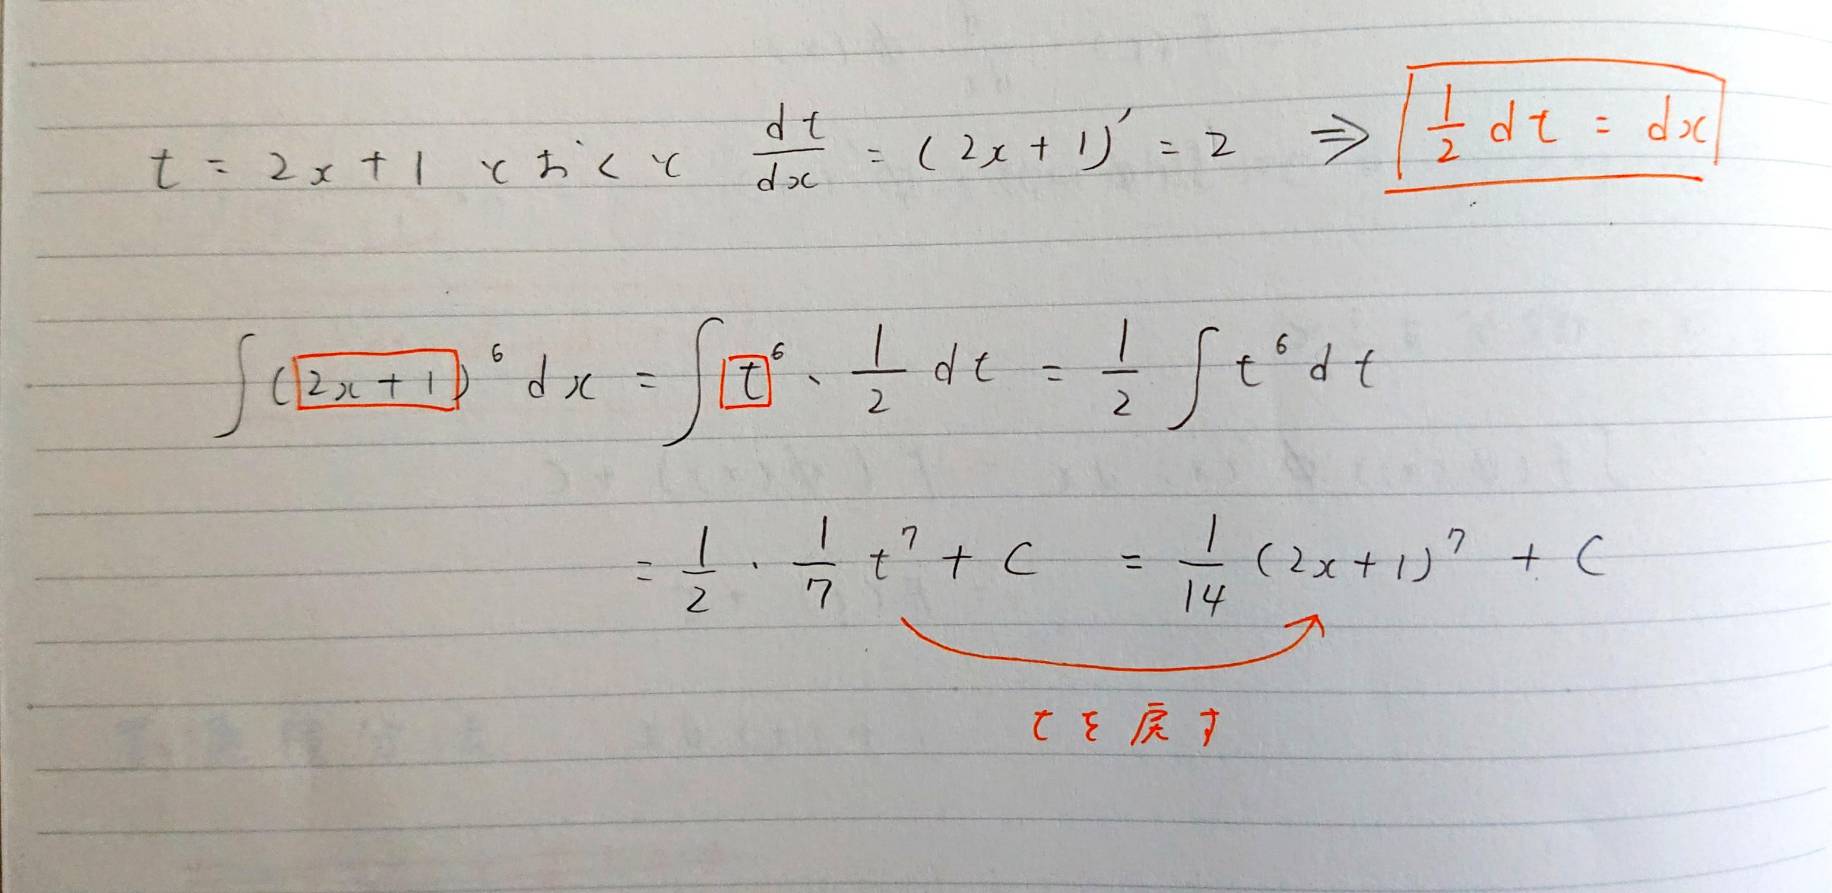 t = 2x + 1 とおくと dt/dx = (2x + 1)' = 2 ⇒ 1/2 dt = dx
∫(2x + 1)⁶ dx = ∫ t⁶ · 1/2 dt = 1/2 ∫ t⁶ dt
= 1/2 · 1/7 t⁷ + C = 1/14 (2x + 1)⁷ + C
tを戻す